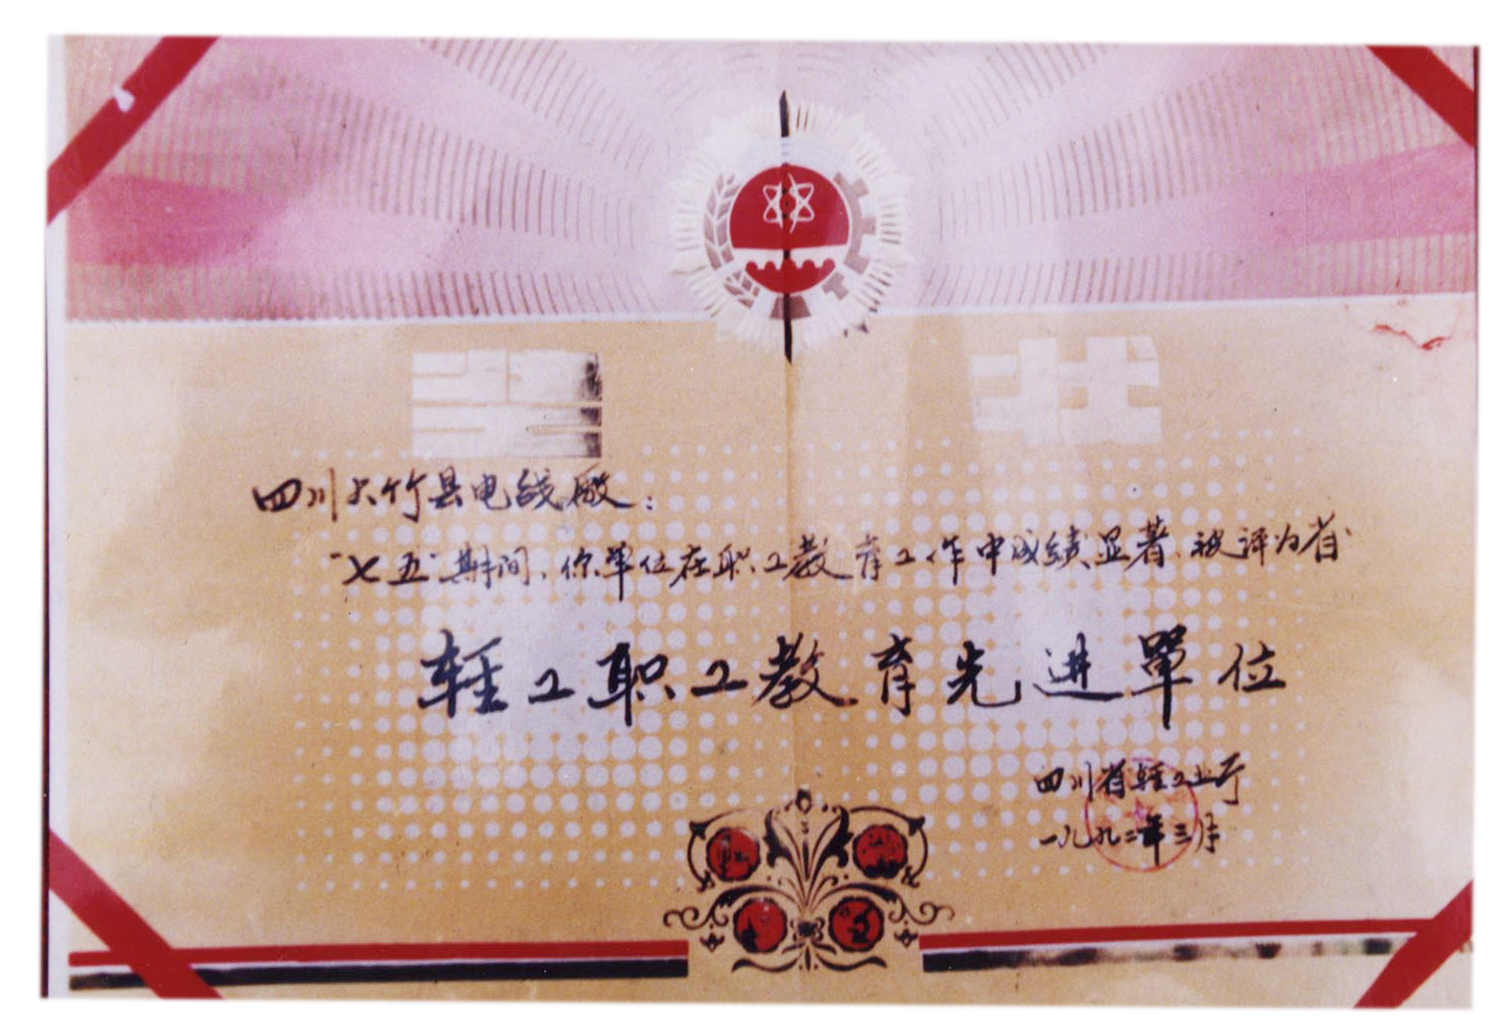 奖状
四川大竹县电线厰：
"七五"期间、你单位在职工教育工作中成绩显著、被评为省
轻工职工教育先进單位
四川省轻工业厅
一九九二年三月